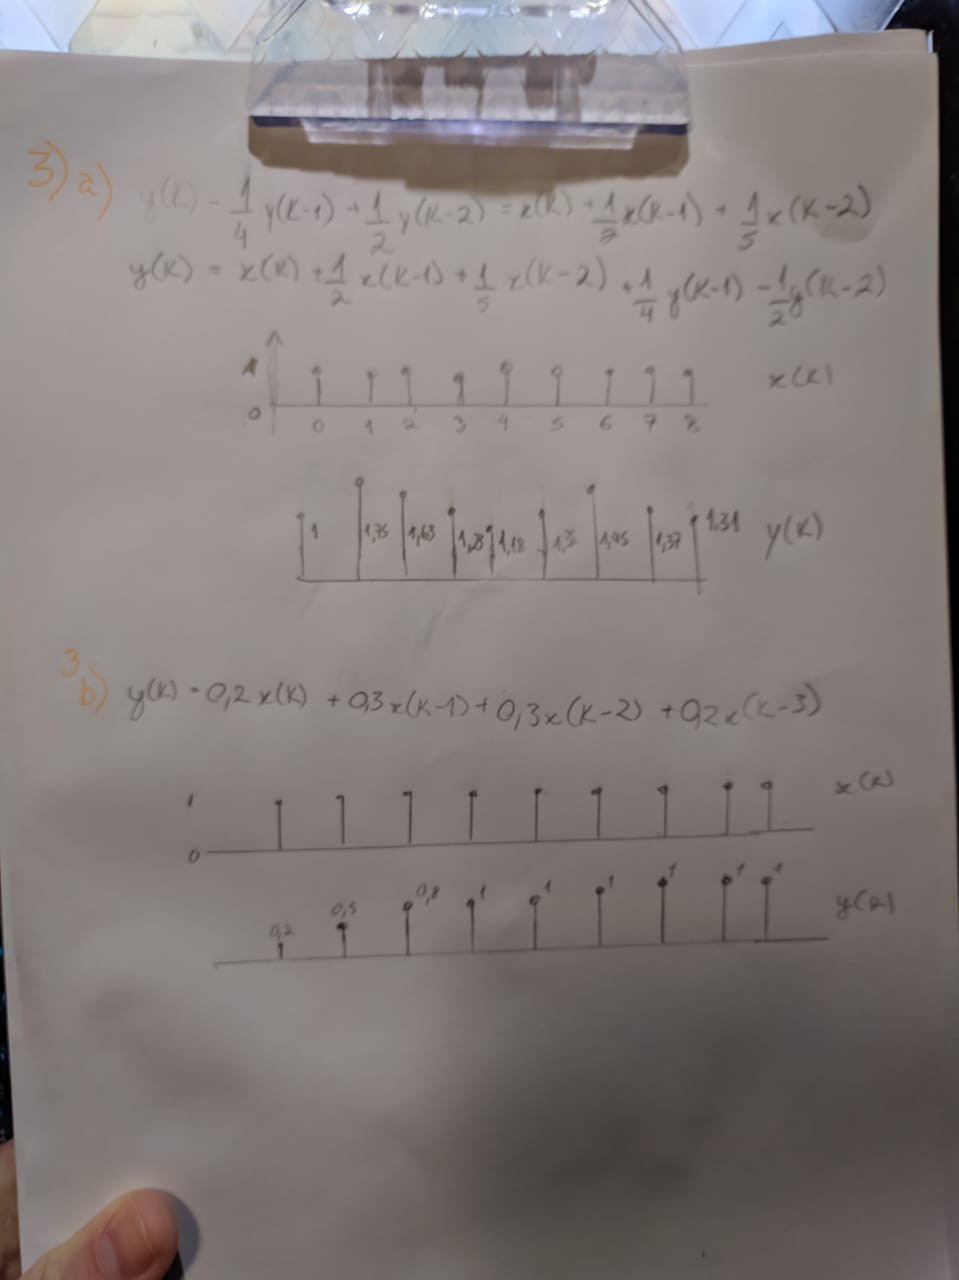 3) a) y(k) - 1/4 y(k-1) + 1/2 y(k-2) = x(k) + 1/2 x(k-1) + 1/5 x(k-2)
y(k) = x(k) + 1/2 x(k-1) + 1/5 x(k-2) + 1/4 y(k-1) - 1/2 y(k-2)
1 x(k)
0
0 1 2 3 4 5 6 7 8
1 1,75 1,63 1,28 1,18 1,3 1,45 1,37 1,31 y(k)
3
b) y(k) = 0,2x(k) + 0,3x(k-1) + 0,3x(k-2) + 0,2x(k-3)
1 x(k)
0
0,2 0,5 0,8 1 1 1 1 1 1 y(k)